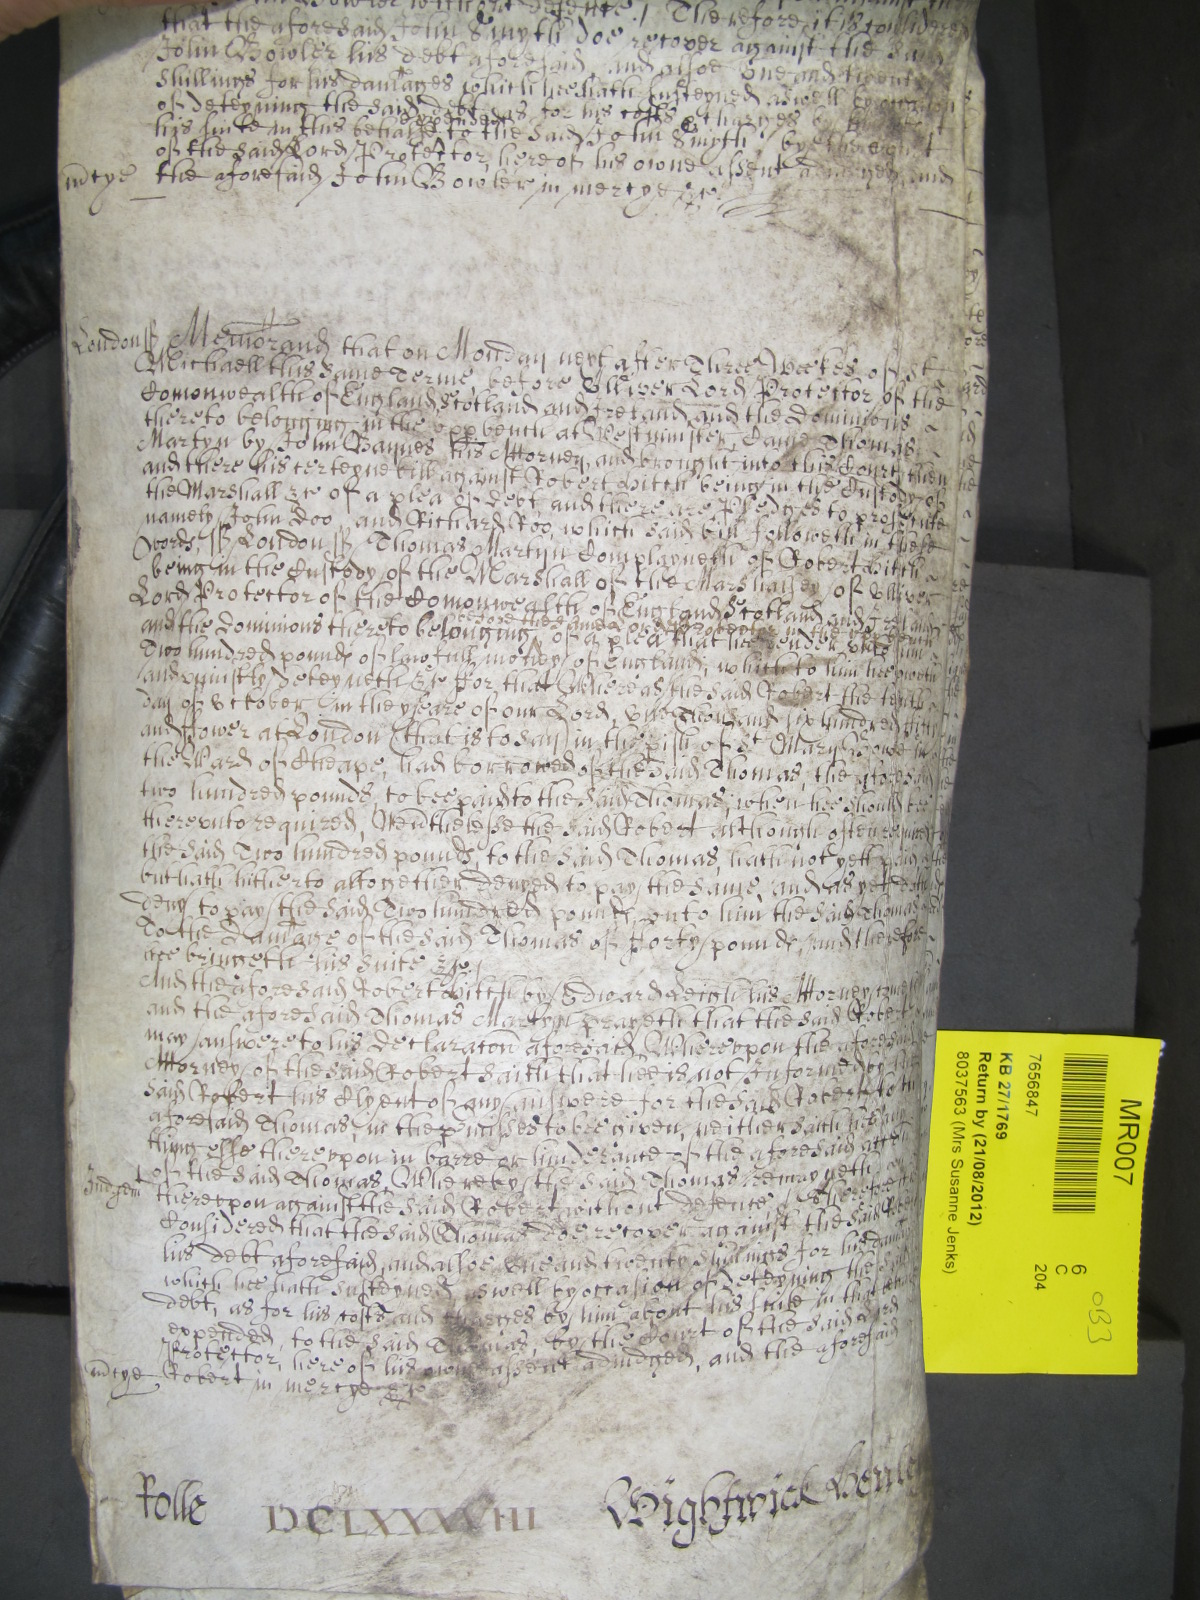 that the aforesaid John Smyth doe recover against the said
John Bowler his debt aforesaid and alsoe one and twenty
shillings for his damages which hee hath susteyned aswell by occasion
of deteyning the said debt as for his costs & charges by
his suite in this behalfe expended to the said John Smyth by the Court
of the said Lord Protector here of his owne assent adiudged and
mcye the aforesaid John Bowler in mercye &c.
London ss Memorand that on Monday next after Three Weekes of St
Michaell this same Terme, before Oliver Lord Protector of the
Comonwealth of England Scotland and Ireland and the dominions
thereto belonging in the vpp bench at Westminster, Came Thomas
Martyn by John Baynes his Attorney, and brought into this Court then
and there his certeyne bill against Robert Witch being in the Custody of
the Marshall &c of a plea of debt, and there are Pledges to prosecute
namely John Doo, and Richard Roo, which said bill followeth in these
words, ss London ss Thomas Martyn Complayneth of Robert Witch
being in the Custody of the Marshall of the Marshalsey of Oliver
Lord Protector of the Comonwealth of England Scotland and Ireland
and the dominions thereto belonging before the said Lord Protector in the vpp bench of a plea that hee render vnto him
Two hundred pounds of lawfull money of England, which to him hee oweth
and vniustly deteyneth &c ffor that Whereas the said Robert the tenth
day of October in the yeare of our Lord, one Thousand six hundred fifty
and ffower at London (that is to say) in the pish of St Mary Bowe in
the Ward of Cheape, had borrowed of the said Thomas, the aforesaid
two hundred pounds, to bee paid to the said Thomas, when hee should bee
therevnto required, Neuthelesse the said Robert although often requested
the said Two hundred pounds, to the said Thomas, hath not yett paid
but hath hitherto altogether denyed to pay the same, and as yet doth
deny to pay the said Two hundred pounds, vnto him the said Thomas
To the Damage of the said Thomas of fforty pounds, and therefore
hee bringeth his suite &c.
And the aforesaid Robert Witch by Edward Leigh his Attorney, cometh
and the aforesaid Thomas Martyn prayeth that the said Robert
may answere to his declaraton aforesaid, Wherevpon the aforesaid
Attorney of the said Robert saith that hee is not Informed by the
said Robert his Clyent of any answere for the said Robert to the
aforesaid Thomas, in the pmisses to bee given, neither saith hee any
thing else therevpon in barre or hinderance of the aforesaid action
of the said Thomas, Whereby the said Thomas remayneth
Iudgemt therevpon against the said Robert without defence, Therefore it is
Considered that the said Thomas doe recover against the said Robert
his debt aforesaid, and alsoe One and twenty shillings for his damages
which hee hath susteyned, aswell by occasion of deteyning the said
debt, as for his costs and charges by him about his suite in this behalfe
expended, to the said Thomas, by the Court of the said Lord
Protector, here of his owne assent adiudged, and the aforesaid
mcye Robert in mercye &c
Rolle DCLXXXXVIII Wightwick
MR007
7656847
KB 27/1769
Return by (21/08/2012)
8037563 (Mrs Susanne Jenks)
6
C
204
033